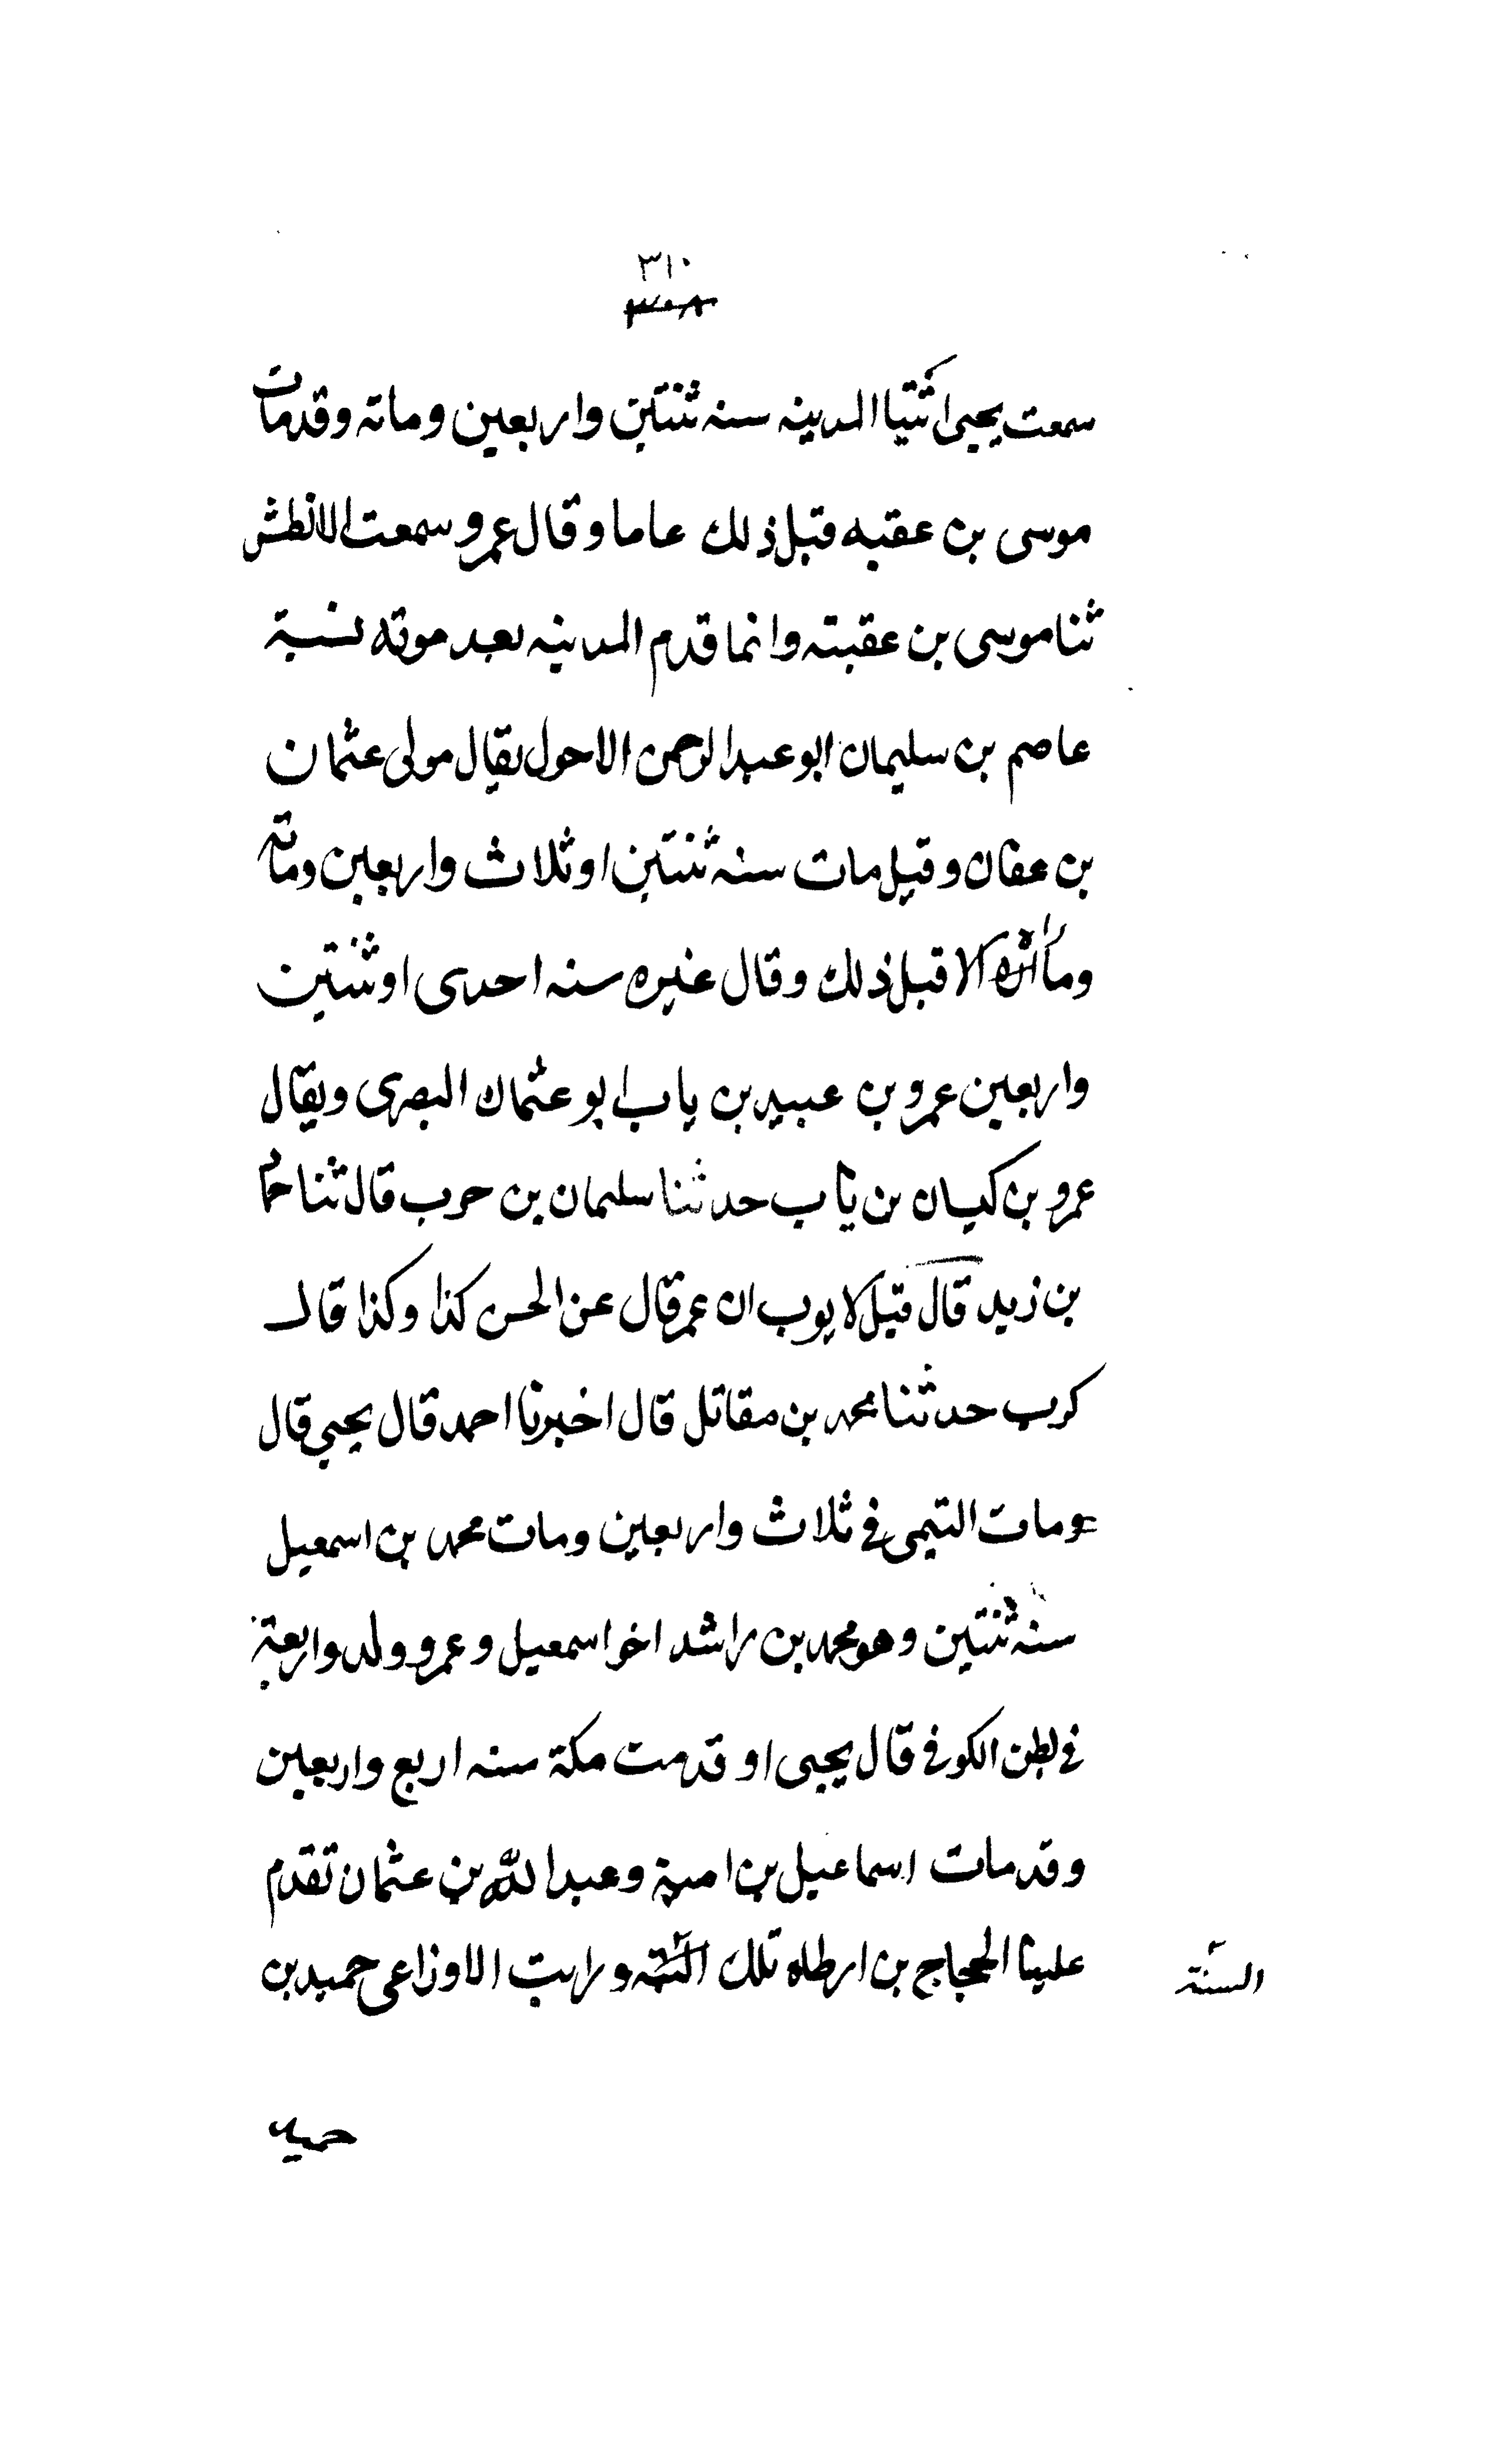 ٣١٠
٣٠٨
سمعت يحيى اتيا المدينه سنه ثنتين واربعين ومائه وقدمات
موسى بن عقبه قبل ذلك عاما وقال عمرو سمعت الانطش
ثنا موسى بن عقبته وانما قدم المدينه بعد موته لسنة
عاصم بن سليمان ابو عبد الرحمن الاحول يقال مولى عثمان
بن عفان وقيل مات سنه ثنتين او ثلاث واربعين ومائه
وما اراه الا قبل ذلك وقال غيره سنه احدى او ثنتين
واربعين عمرو بن عبيد بن باب ابو عثمان البصرى ويقال
عمرو بن كيسان بن باب حدثنا سليمان بن حرب قال ثنا حماد
بن زيد قال قيل لايوب ان عمر قال عن الحسن كذا وكذا قال
كرب حدثنا محمد بن مقاتل قال اخبرنا احمد قال يحيى قال
ومات التيمى فى ثلاث واربعين ومات محمد بن اسمعيل
سنه ثنتين وهو محمد بن راشد اخو اسمعيل وعمرو ولدوا اربعة
فى بطن الكوفى قال يحيى او قدمت مكة سنه اربع واربعين
وقدمات اسماعيل بن امية وعبد الله بن عثمان تقدم
علينا الحجاج بن ارطاه تلك ورايت الاوزاعى حميد بن
السنة
حميد